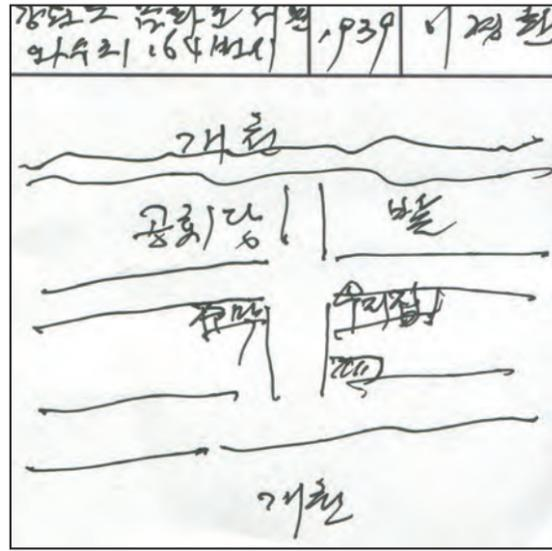 강원도 김화군 서면
와수리 164번지
1939
이경환
개천
공회당
밭
주막
우리집
개천